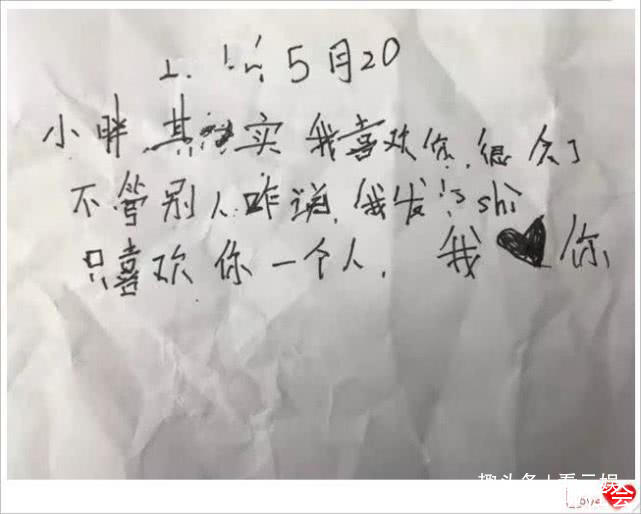 5月20
小胖,其实 我喜欢你,很久了
不管别人咋说,我发 shi
只喜欢你一个人, 我❤你
趣头条 | 看云娱
会